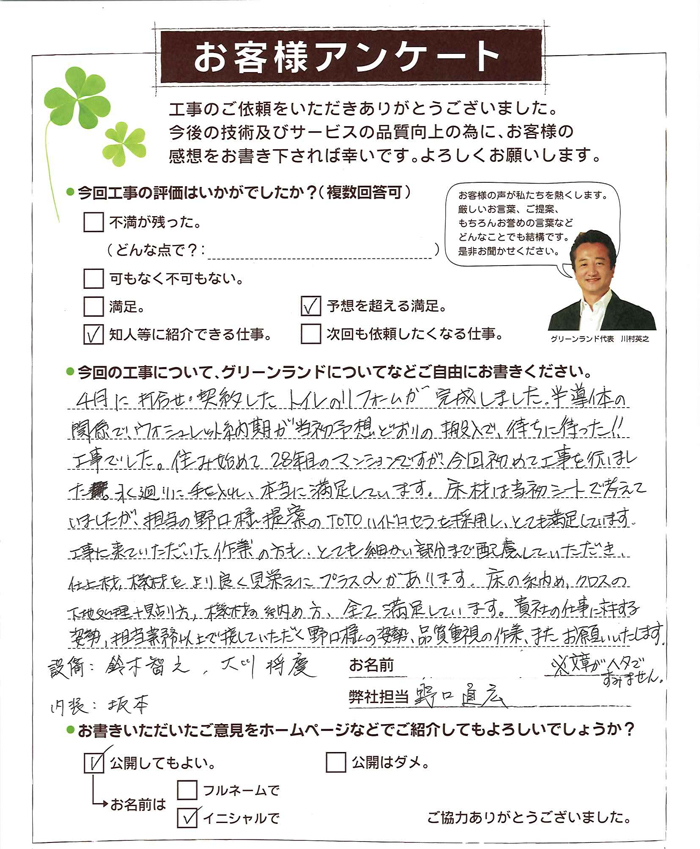 お客様アンケート
工事のご依頼をいただきありがとうございました。
今後の技術及びサービスの品質向上の為に、お客様の
感想をお書き下されば幸いです。よろしくお願いします。
●今回工事の評価はいかがでしたか?(複数回答可)
お客様の声が私たちを熱くします。
厳しいお言葉、ご提案、
もちろんお誉めの言葉など
どんなことでも結構です。
是非お聞かせください。
不満が残った。
(どんな点で?: )
可もなく不可もない。
満足。 ✓ 予想を超える満足。
✓ 知人等に紹介できる仕事。 次回も依頼したくなる仕事。
グリーンランド代表 川村英之
●今回の工事について、グリーンランドについてなどご自由にお書きください。
4月に打合せ・契約したトイレのリフォームが完成しました。半導体の
関係で、ウォシュレット納期が当初予想どおりの搬入で、待ちに待った!!
工事でした。住み始めて28年目のマンションですが、今回初めて工事を行いまし
た。水廻りに手を入れ、本当に満足しています。床材は当初シートで考えて
いましたが、担当の野口様提案のTOTOハイドロセラを採用し、とても満足しています。
工事に来ていただいた作業の方も、とても細かい部分まで配慮していただき、
仕上材、機材をより良く見栄えにプラスαがあります。床の納め、クロスの
下地処理+見切り方、機材の納め方、全て満足しています。貴社の仕事に対する
姿勢、担当業務以上で接していただく野口様の姿勢、品質重視の作業、またお願いいたします。
設備: 鈴木智之、大川将慶
お名前
※文章がヘタで
すみません。
内装: 坂本
弊社担当 野口直広
●お書きいただいたご意見をホームページなどでご紹介してもよろしいでしょうか?
✓ 公開してもよい。 公開はダメ。
お名前は フルネームで
✓ イニシャルで
ご協力ありがとうございました。